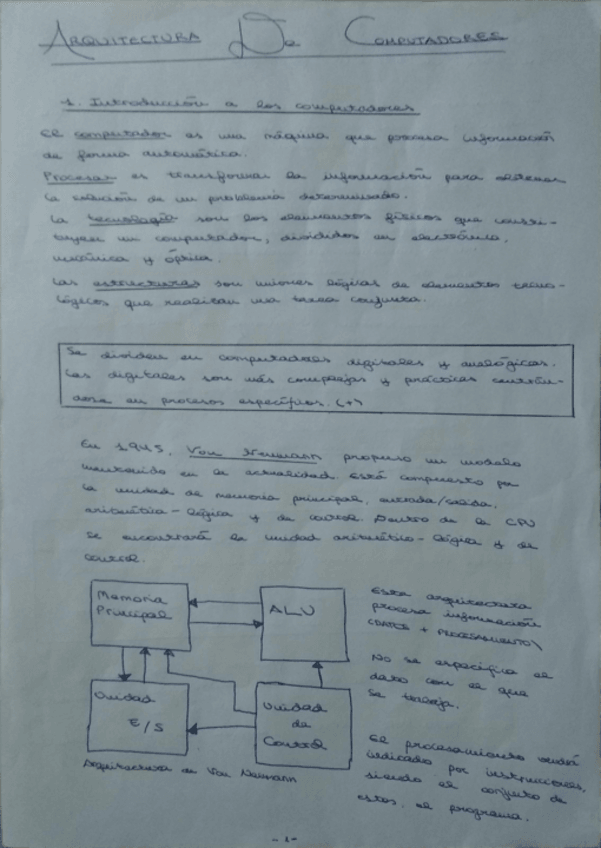 ARQUITECTURA DE COMPUTADORES
1. Introducción a los computadores
El computador es una máquina que procesa información
de forma automática.
Procesar es transformar la información para obtener
la solución de un problema determinado.
La tecnología son los elementos físicos que consti-
tuyen un computador, divididos en electrónica,
mecánica y óptica.
Las estructuras son uniones lógicas de elementos tecno-
lógicos que realizan una tarea conjunta.
Se dividen en computadores digitales y analógicos.
Los digitales son más complejos y prácticos centrán-
dose en procesos específicos. (+)
En 1945, Von Neumann propuso un modelo
mantenido en la actualidad. Está compuesto por
la unidad de memoria principal, entrada/salida,
aritmético-lógica y de control. Dentro de la CPU
se encontrará la unidad aritmético-lógica y de
control.
Memoria
Principal
ALU
Unidad
E/S
Unidad
de
Control
Arquitectura de Von Neumann
Esta arquitectura
procesa información
(DATOS + PROCESAMIENTO)
No se especifica el
dato con el que
se trabaja.
El procesamiento vendrá
indicado por instrucciones,
siendo el conjunto de
estas, el programa.
-1-